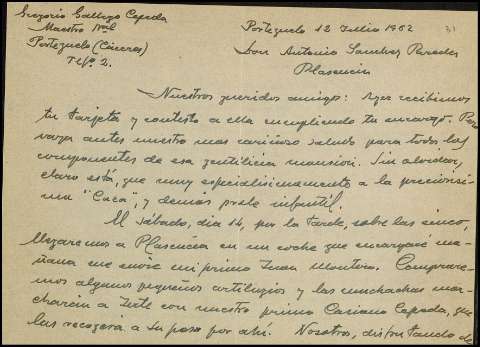 Gregorio Gallego Cepeda
Maestro Nal
Portezuelo (Cáceres)
Tlfº. 2.
Portezuelo 12 Julio 1962
31
Don Antonio Sanchez Paredes
Plasencia
Nuestros queridos amigos: Ayer recibimos
tu tarjeta y contesto a ella cumpliendo tu encargo. Pero
vaya antes nuestro mas cariñoso saludo para todos los
componentes de esa gentilicia mansión. Sin olvidar,
claro está, que muy especialisimamente a la preciosisi-
ma "Cuca", y demás prole infantil.
El sábado, dia 14, por la tarde, sobre las cinco,
llegaremos a Plasencia en un coche que encargué ma-
ñana me envie mi primo Juan Montero. Comprare-
mos algunos pequeños artilugios y las muchachas mar-
charán a Jerte con nuestro primo Casiano Cepeda, que
las recogerá a su paso por ahí. Nosotros, disfrutando de